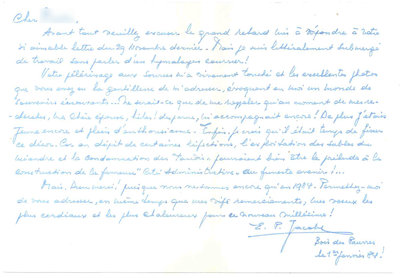 Cher
Avant tout veuillez excuser le grand retard mis à répondre à votre
si aimable lettre du 29 Novembre dernier. Mais je suis littéralement submergé
de travail sans parler d'un hymalayen courrier!
Votre pèlerinage aux sources m'a vivement touché et les excellentes photos
que vous avez eu la gentillesse de m'adresser, évoquent en moi un monde de
souvenirs émouvants. Ne serait-ce que de me rappeler qu'au moment de mes
ma chère épouse, m'accompagnait encore! De plus j'étais
jeune encore et plein d'enthousiasme. Enfin je crois qu'il était temps de
ce décor. Car en dépit de certaines, l'exploitation des sables du
méandre et la condamnation des pourraient bien être le prélude à la
construction de la fameuse "Cité Administrative" de funeste avenir!...
Mais, puisque nous ne sommes encore qu'en 1984. Permettez-moi
de vous adresser, en même temps que mes vifs remerciements, mes vœux les
plus cordiaux et les plus chaleureux pour ce nouveau millésime!
E. P. Jacobs
Bois des Pauvres
le janvier 84!